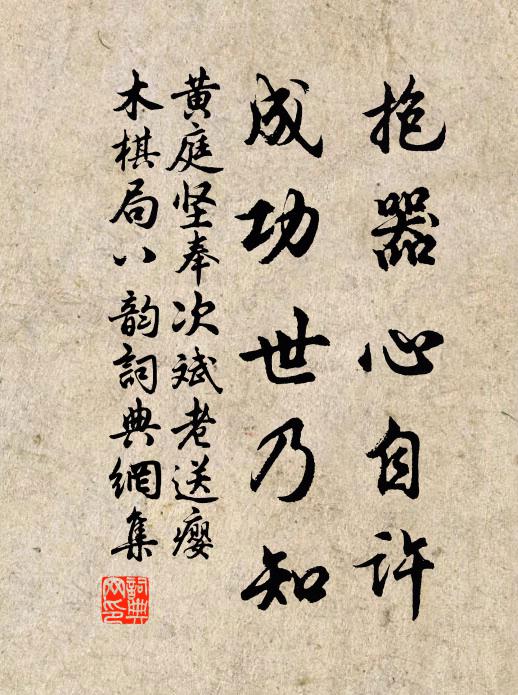 抱器心自许
成功世乃知
黄庭坚奉次斌老送瘿
木棋局八韵詞典網集
詞典
网印